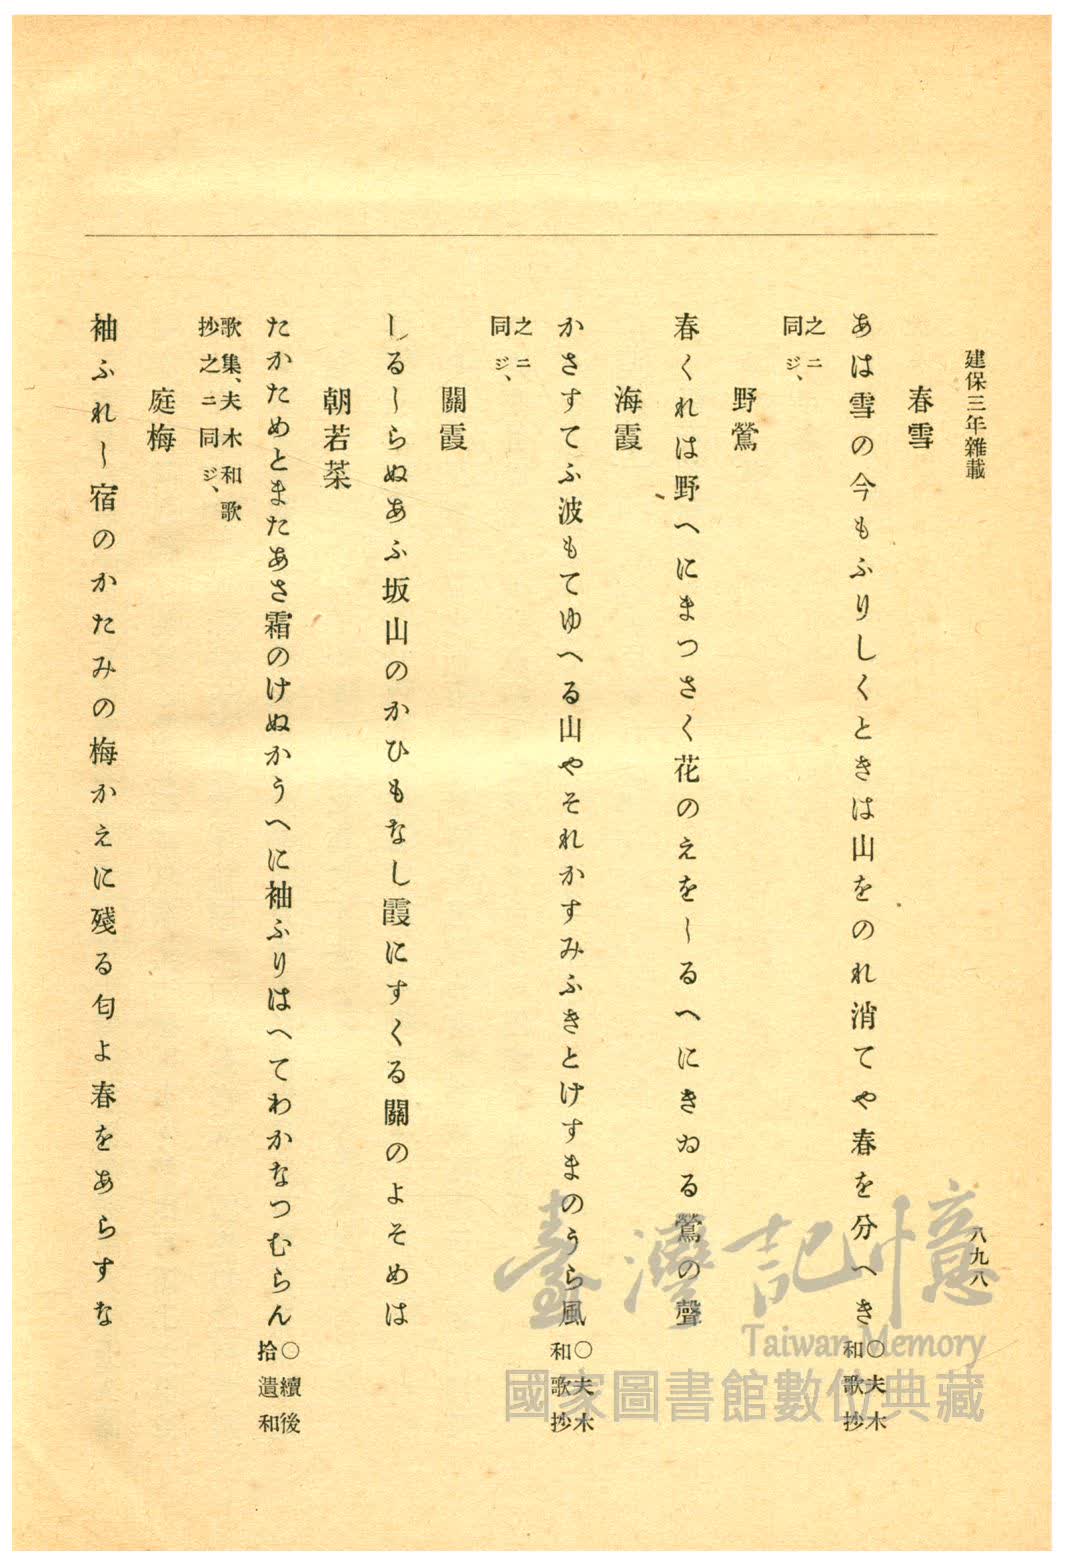 建保三年雜載
八九八
春雪
あは雪の今もふりしくときは山をのれ消てや春を分へき
○夫木
和歌抄
之ニ
同ジ、
野鶯
春くれは野へにまつさく花のえをしるへにきゐる鶯の聲
海霞
かさすてふ波もてゆへる山やそれかすみふきとけすまのうら風
○夫木
和歌抄
之ニ
同ジ、
關霞
しるしらぬあふ坂山のかひもなし霞にすくる關のよそめは
朝若菜
たかためとまたあさ霜のけぬかうへに袖ふりはへてわかなつむらん
○續後
拾遺和
歌集、夫木和歌
抄之ニ同ジ、
庭梅
袖ふれし宿のかたみの梅かえに殘る匂よ春をあらすな
臺灣記憶
Taiwan Memory
國家圖書館數位典藏